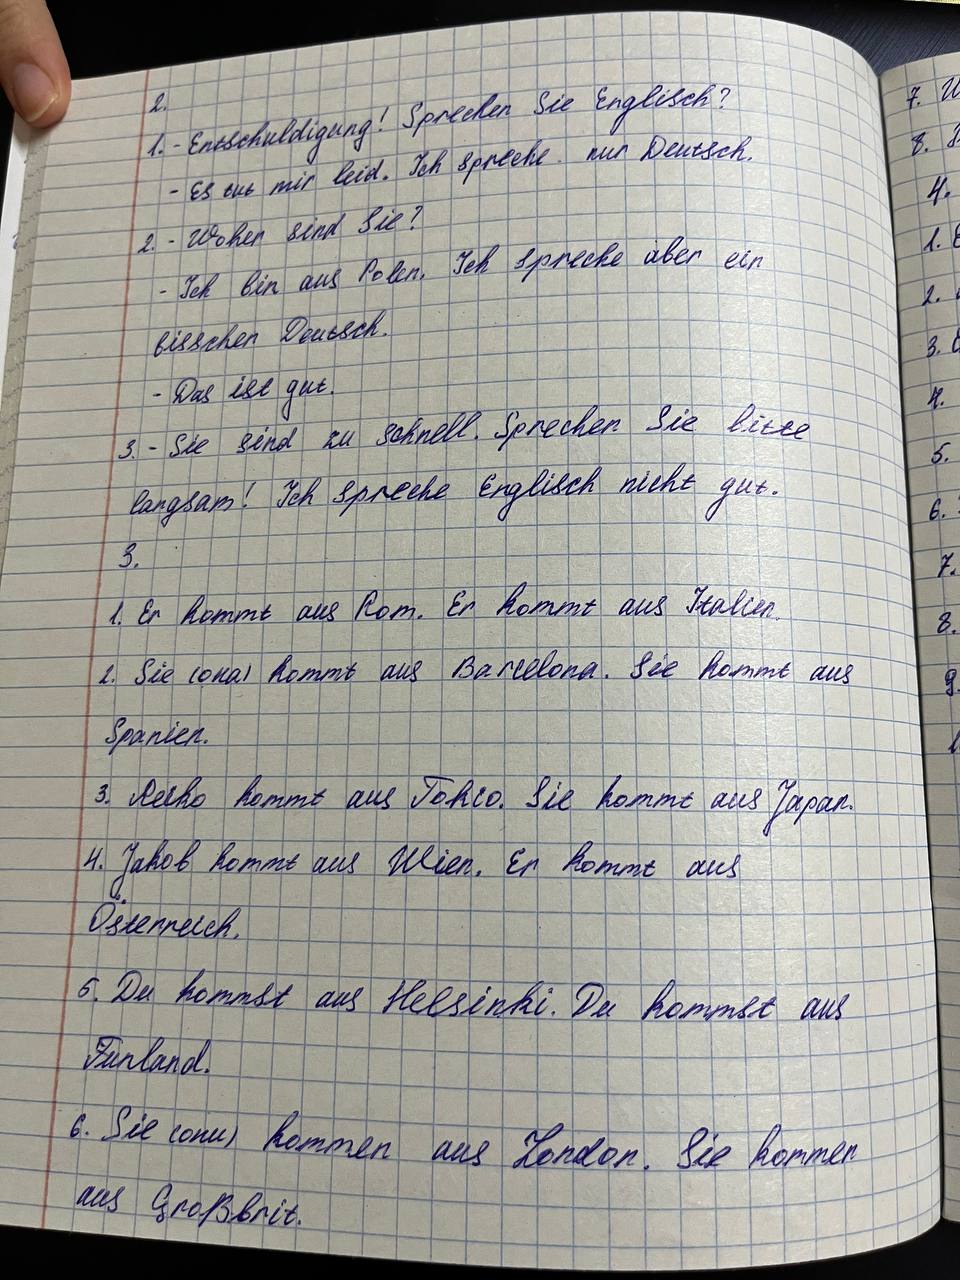 2.
1. - Entschuldigung! Sprechen Sie Englisch?
- Es tut mir leid. Ich spreche nur Deutsch.
2. - Woher sind Sie?
- Ich bin aus Polen. Ich spreche aber ein
bisschen Deutsch.
- Das ist gut.
3. - Sie sind zu schnell. Sprechen Sie bitte
langsam! Ich spreche Englisch nicht gut.
3.
1. Er kommt aus Rom. Er kommt aus Italien.
2. Sie (она) kommt aus Barcelona. Sie kommt aus
Spanien.
3. Keiko kommt aus Tokio. Sie kommt aus Japan.
4. Jakob kommt aus Wien. Er kommt aus
Österreich.
5. Du kommst aus Helsinki. Du kommst aus
Finnland.
6. Sie (они) kommen aus London. Sie kommen
aus Großbrit.
7.
8.
4.
1.
2.
3.
4.
5.
6.
7.
8.
9.